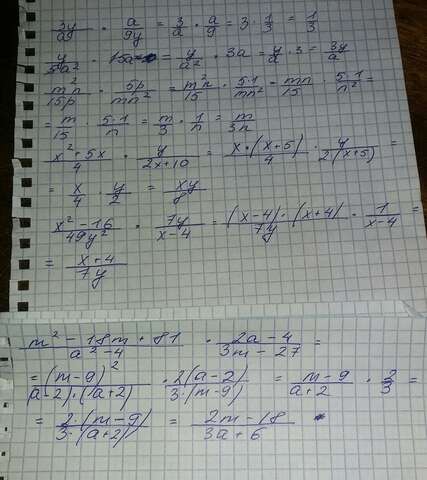 3y/ag · a/9y = 3/a · a/9 = 3 · 1/3 = 1/3
y/5a² · 15a = y/a² · 3a = y/a · 3 = 3y/a
m²n/15p · 5p/mn² = m²n/15 · 5·1/mn² = mn/15 · 5·1/n² =
= m/15 · 5·1/n = m/3 · 1/n = m/3n
x²+5x/4 · y/2x+10 = x·(x+5)/4 · y/2(x+5) =
= x/4 · y/2 = xy/8
x²-16/49y² · 7y/x-4 = (x-4)·(x+4)/7y · 1/x-4 =
= x+4/7y
m²-18m+81/a²-4 · 2a-4/3m-27 =
= (m-9)²/(a-2)·(a+2) · 2(a-2)/3·(m-9) = m-9/a+2 · 2/3 =
= 2·(m-9)/3·(a+2) = 2m-18/3a+6